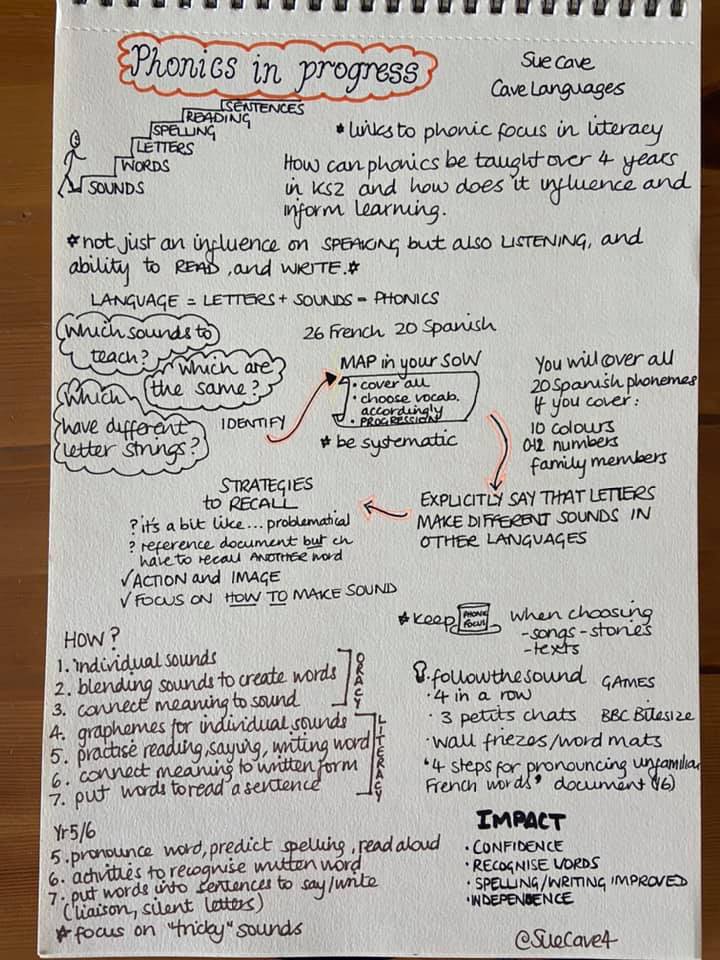 Phonics in progress
Sue Cave
Cave Languages
SENTENCES
READING
SPELLING
LETTERS
WORDS
SOUNDS
*links to phonic focus in literacy
How can phonics be taught over 4 years
in KS2 and how does it influence and
inform learning.
*not just an influence on SPEAKING but also LISTENING, and
ability to READ, and WRITE.*
LANGUAGE = LETTERS + SOUNDS = PHONICS
Which sounds to
teach?
Which are
the same?
Which
have different
letter strings?
IDENTIFY
26 French 20 Spanish
MAP in your SoW
• cover all
• choose vocab.
accordingly
• PROGRESSION
* be systematic
You will cover all
20 Spanish phonemes
if you cover:
10 colours
0-12 numbers
family members
EXPLICITLY SAY THAT LETTERS
MAKE DIFFERENT SOUNDS IN
OTHER LANGUAGES
STRATEGIES
to RECALL
? it's a bit like... problematical
? reference document but ch
have to recall ANOTHER word
✓ ACTION and IMAGE
✓ FOCUS ON HOW TO MAKE SOUND
*keep PHONIC FOCUS when choosing
- songs - stories
- texts
HOW?
1. individual sounds
2. blending sounds to create words
3. connect meaning to sound
ORACY
4. graphemes for individual sounds
5. practise reading, saying, writing word
6. connect meaning to written form
7. put words to read a sentence
LITERACY
followthesound GAMES
• 4 in a row
• 3 petits chats BBC Bitesize
• wall friezes/word mats
"4 steps for pronouncing unfamiliar
French words" document (16)
Yr5/6
5. pronounce word, predict spelling, read aloud
6. activities to recognise written word
7. put words into sentences to say/write
(liaison, silent letters)
* focus on "tricky" sounds
IMPACT
• CONFIDENCE
• RECOGNISE WORDS
• SPELLING/WRITING IMPROVED
• INDEPENDENCE
@SueCave4